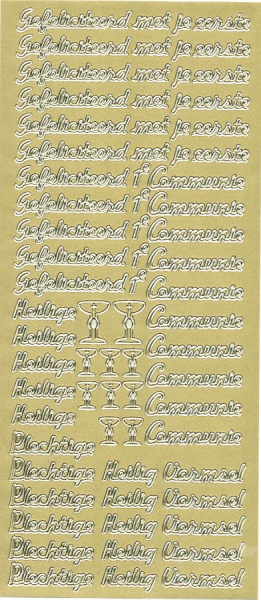 Gefeliciteerd met je eerste
Gefeliciteerd met je eerste
Gefeliciteerd met je eerste
Gefeliciteerd met je eerste
Gefeliciteerd met je eerste
Gefeliciteerd met je eerste
Gefeliciteerd 1e Communie
Gefeliciteerd 1e Communie
Gefeliciteerd 1e Communie
Gefeliciteerd 1e Communie
Gefeliciteerd 1e Communie
Heilige Communie
Heilige Communie
Heilige Communie
Heilige Communie
Heilige Communie
Plechtige
Plechtige Heilig Vormsel
Plechtige Heilig Vormsel
Plechtige Heilig Vormsel
Plechtige Heilig Vormsel
Plechtige Heilig Vormsel